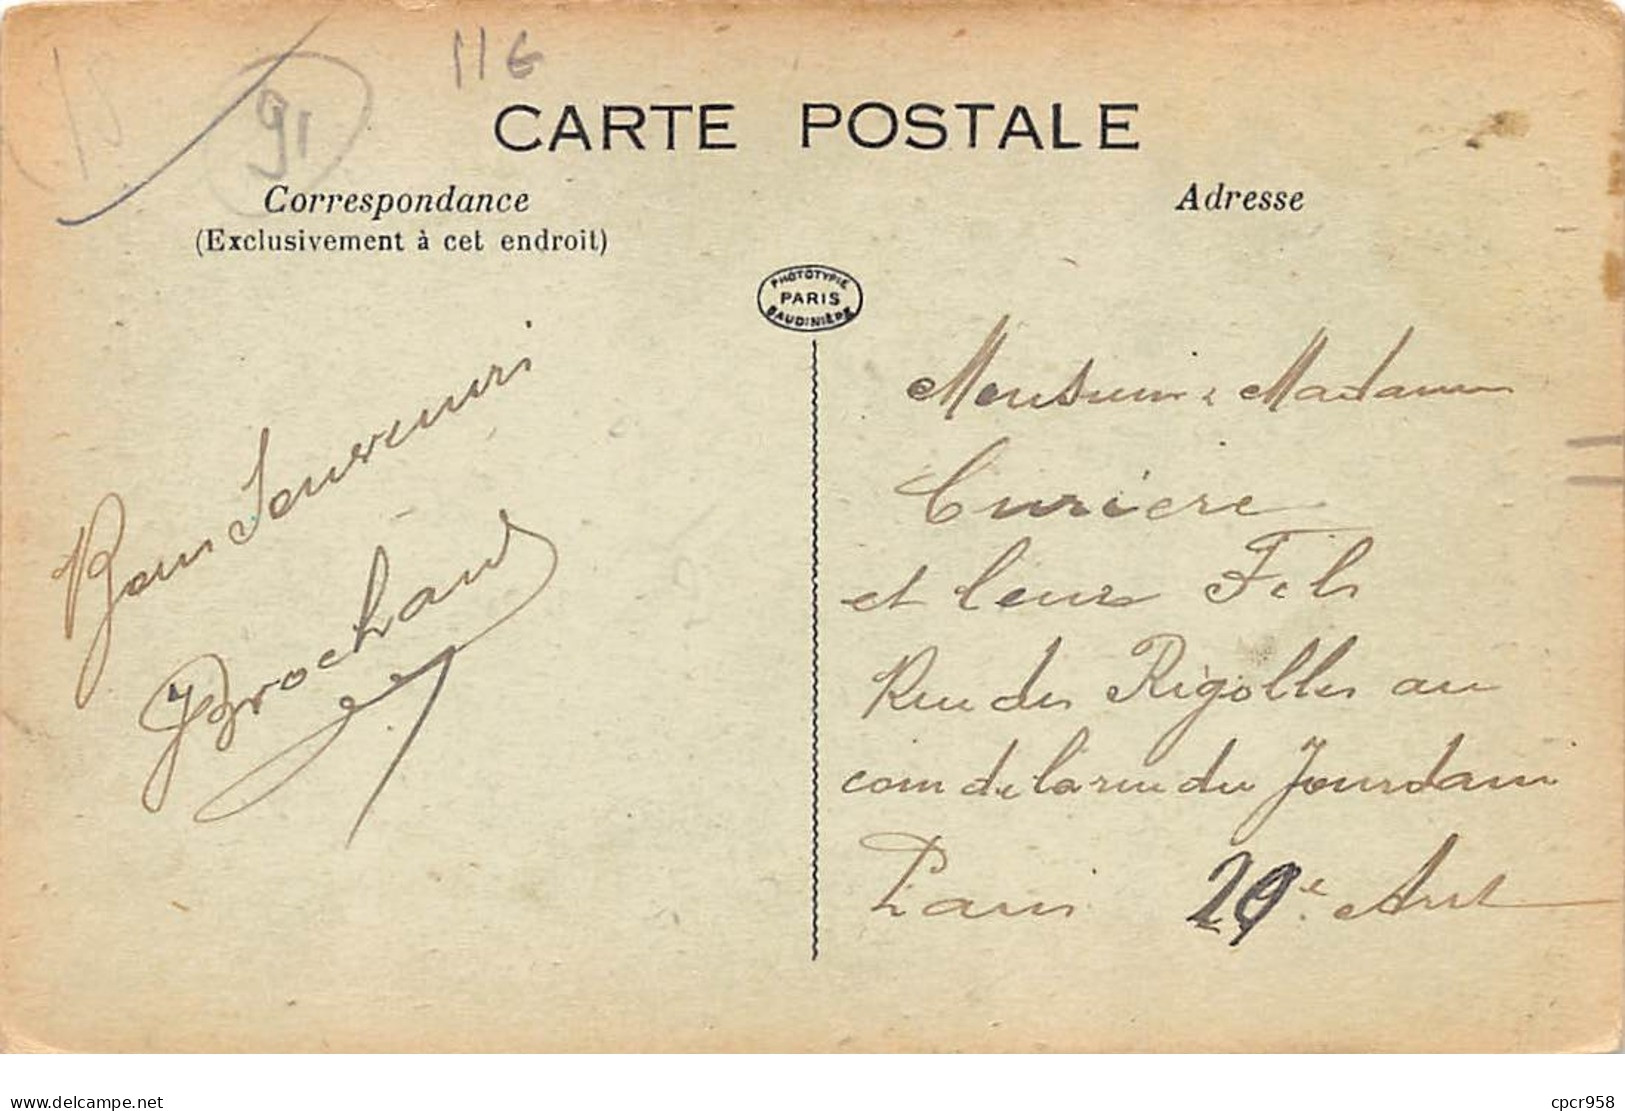 116
91
CARTE POSTALE
Correspondance
(Exclusivement à cet endroit)
Adresse
PHOTOTYPIE
PARIS
BAUDINIÈRE
Bons Souvenirs
Brochand
Monsieur & Madame
Curiere
et leurs Fils
Rue des Rigolles au
coin de la rue du Jourdain
Paris 20e Arrt
delcampe.net
cpcr958